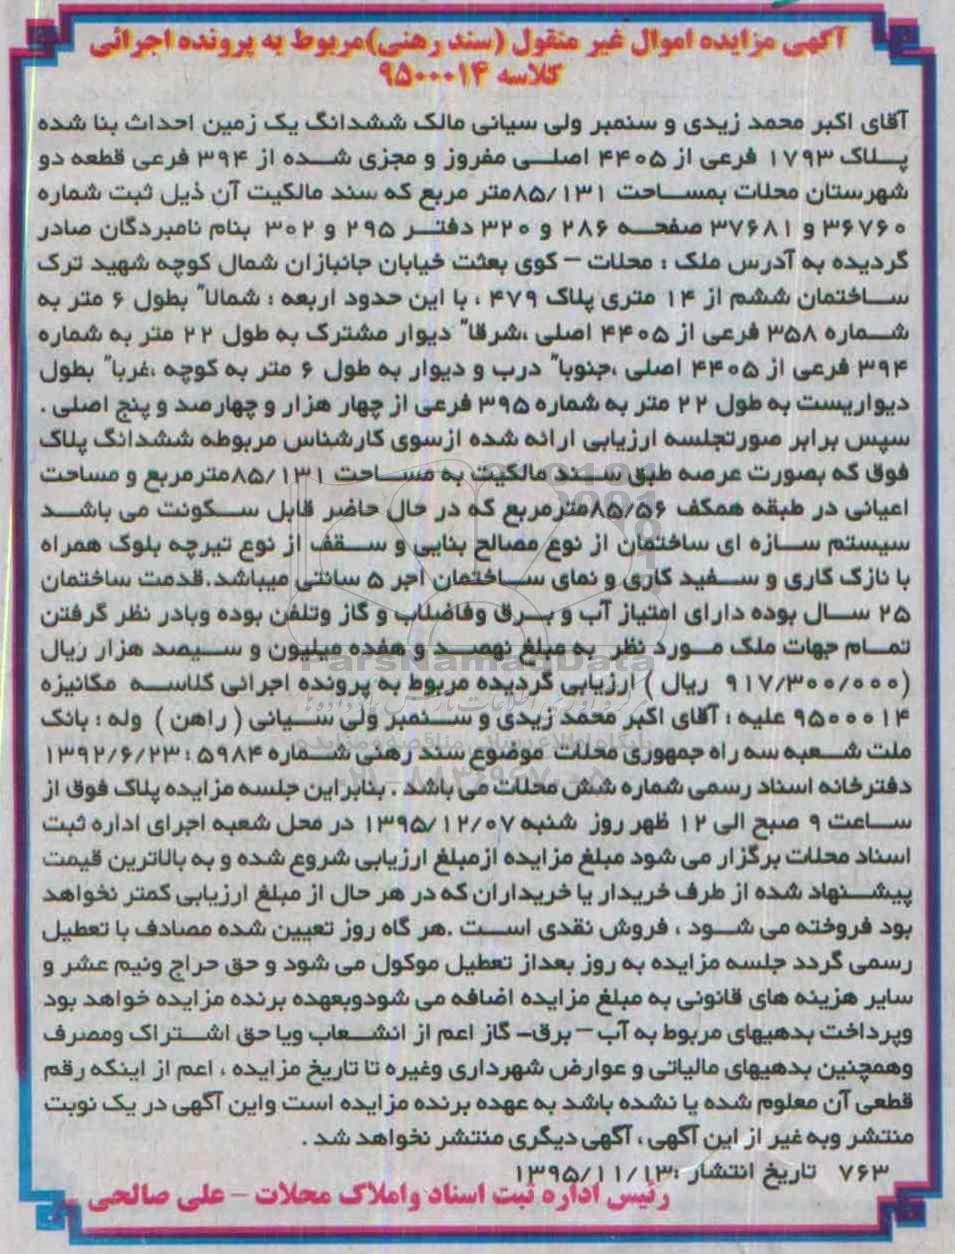 آگهی مزایده اموال غیر منقول (سند رهنی)مربوط به پرونده اجرائی
کلاسه ۹۵۰۰۰۱۴
آقای اکبر محمد زیدی و سنمبر ولی سیانی مالک ششدانگ یک زمین احداث بنا شده
پلاک ۱۷۹۳ فرعی از ۴۴۰۵ اصلی مفروز و مجزی شده از ۳۹۴ فرعی قطعه دو
شهرستان محلات بمساحت ۸۵/۱۳۱متر مربع که سند مالکیت آن ذیل ثبت شماره
۳۶۷۶۰ و ۳۷۶۸۱ صفحه ۲۸۶ و ۳۲۰ دفتر ۲۹۵ و ۳۰۲ بنام نامبردگان صادر
گردیده به آدرس ملک : محلات – کوی بعثت خیابان جانبازان شمال کوچه شهید ترک
ساختمان ششم از ۱۴ متری پلاک ۴۷۹ ، با این حدود اربعه : شمالا" بطول ۶ متر به
شماره ۳۵۸ فرعی از ۴۴۰۵ اصلی ،شرقا" دیوار مشترک به طول ۲۲ متر به شماره
۳۹۴ فرعی از ۴۴۰۵ اصلی ،جنوبا" درب و دیوار به طول ۶ متر به کوچه ،غربا" بطول
دیواریست به طول ۲۲ متر به شماره ۳۹۵ فرعی از چهار هزار و چهارصد و پنج اصلی .
سپس برابر صورتجلسه ارزیابی ارائه شده ازسوی کارشناس مربوطه ششدانگ پلاک
فوق که بصورت عرصه طبق سند مالکیت به مساحت ۸۵/۱۳۱مترمربع و مساحت
اعیانی در طبقه همکف ۸۵/۵۶مترمربع که در حال حاضر قابل سکونت می باشد
سیستم سازه ای ساختمان از نوع مصالح بنایی و سقف از نوع تیرچه بلوک همراه
با نازک کاری و سفید کاری و نمای ساختمان اجر ۵ سانتی میباشد.قدمت ساختمان
۲۵ سال بوده دارای امتیاز آب و برق وفاضلاب و گاز وتلفن بوده وبادر نظر گرفتن
تمام جهات ملک مورد نظر به مبلغ نهصد و هفده میلیون و سیصد هزار ریال
(۹۱۷/۳۰۰/۰۰۰ ریال ) ارزیابی گردیده مربوط به پرونده اجرائی کلاسه مکانیزه
۹۵۰۰۰۱۴ علیه : آقای اکبر محمد زیدی و سنمبر ولی سیانی ( راهن ) وله : بانک
ملت شعبه سه راه جمهوری محلات موضوع سند رهنی شماره ۵۹۸۴ : ۱۳۹۲/۶/۲۳
دفترخانه اسناد رسمی شماره شش محلات می باشد . بنابراین جلسه مزایده پلاک فوق از
ساعت ۹ صبح الی ۱۲ ظهر روز شنبه ۱۳۹۵/۱۲/۰۷ در محل شعبه اجرای اداره ثبت
اسناد محلات برگزار می شود مبلغ مزایده ازمبلغ ارزیابی شروع شده و به بالاترین قیمت
پیشنهاد شده از طرف خریدار یا خریداران که در هر حال از مبلغ ارزیابی کمتر نخواهد
بود فروخته می شود ، فروش نقدی است .هر گاه روز تعیین شده مصادف با تعطیل
رسمی گردد جلسه مزایده به روز بعداز تعطیل موکول می شود و حق حراج ونیم عشر و
سایر هزینه های قانونی به مبلغ مزایده اضافه می شودوبعهده برنده مزایده خواهد بود
وپرداخت بدهیهای مربوط به آب – برق– گاز اعم از انشعاب ویا حق اشتراک ومصرف
وهمچنین بدهیهای مالیاتی و عوارض شهرداری وغیره تا تاریخ مزایده ، اعم از اینکه رقم
قطعی آن معلوم شده یا نشده باشد به عهده برنده مزایده است واین آگهی در یک نوبت
منتشر وبه غیر از این آگهی ، آگهی دیگری منتشر نخواهد شد .
۷۶۳ تاریخ انتشار :۱۳۹۵/۱۱/۱۳
رئیس اداره ثبت اسناد واملاک محلات – علی صالحی
ParsNamadData